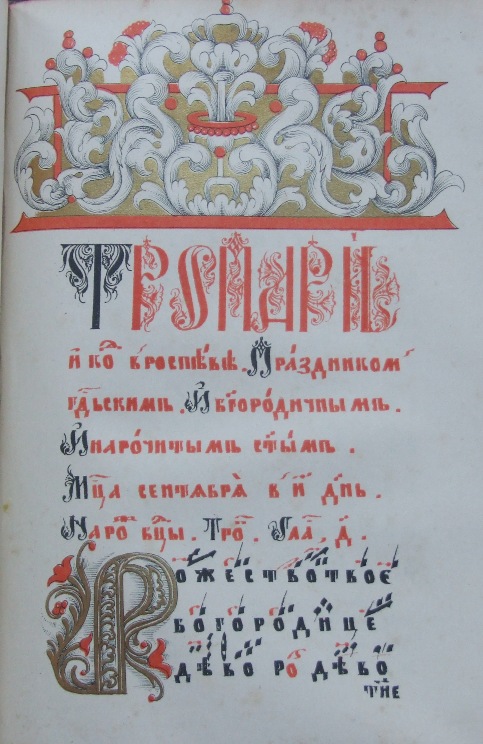 ТРОПАРИ
и҆ ко҇ в роспѣвѣ. Праздником
гдⷭ҇ьскимъ. И҆ бг҃ородичнымъ.
И҆ нарочитымъ ст҃ымъ.
Мцⷭ҇а сентѧбрѧ̀ в и҃ дн҃ь.
На ро҇ бцы. Тро҇. Гла҇, д҃.
Рожество твоє
богородице
дѣво ро дѣво